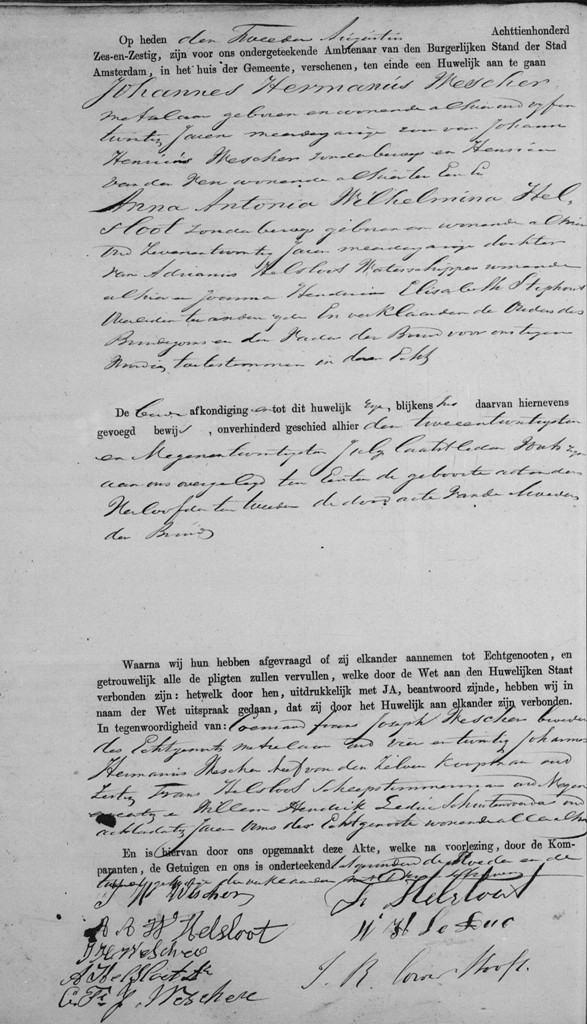 Op heden den Tweeden Augustus Achttienhonderd
Zes-en-Zestig, zijn voor ons ondergeteekende Ambtenaar van den Burgerlijken Stand der Stad
Amsterdam, in het huis der Gemeente, verschenen, ten einde een Huwelijk aan te gaan
Johannes Hermanus Wescher
metselaar geboren en wonende alhier oud vijf en
twintig Jaren meerderjarige zoon van Johann
Henricus Wescher zonder beroep en
van der Ven wonende alhier ter Eenre En
Anna Antonia Wilhelmina Hel-
sloot zonder beroep geboren en wonende alhier
oud Zevenentwintig Jaren meerderjarige dochter
van Adrianus Helsloot Waterschipper wonende
alhier en Joanna Elisabeth
Overleden ter andere zijde En verklaarden de Ouders des
Bruidegoms en de Vader der Bruid voor ons tegen
woordig toe te stemmen in deze Echt
De beide afkondigingen tot dit huwelijk zijn, blijkens het daarvan hiernevens
gevoegd bewijs, onverhinderd geschied alhier den tweeentwintigsten
en Negenentwintigsten July laatstleden Ook zijn
aan ons overgelegd ten Eerste de geboorte acten der
Verloofden ten tweede de dood acte van de Moeder
der Bruid
Waarna wij hun hebben afgevraagd of zij elkander aannemen tot Echtgenooten, en
getrouwelijk alle de pligten zullen vervullen, welke door de Wet aan den Huwelijken Staat
verbonden zijn: hetwelk door hen, uitdrukkelijk met JA, beantwoord zijnde, hebben wij in
naam der Wet uitspraak gedaan, dat zij door het Huwelijk aan elkander zijn verbonden.
In tegenwoordigheid van: Frans Joseph Wescher broeder
des Echtgenoots metselaar oud vier en twintig Johannes
Hermanus Wescher Neef van den Zelven Koopman oud
Zestig Frans Helsloot Scheepstimmerman oud Negen
en Willem Hendrik Leduc oud
achtendertig Jaren Ooms der Echtgenoote wonende alle alhier
En is hiervan door ons opgemaakt deze Akte, welke na voorlezing, door de Kom-
paranten, de Getuigen en ons is onderteekend
J H Wescher
F. Helsloot
A A W Helsloot
W H Le Duc
J H Wescher
A Helsloot
F. J. Wescher